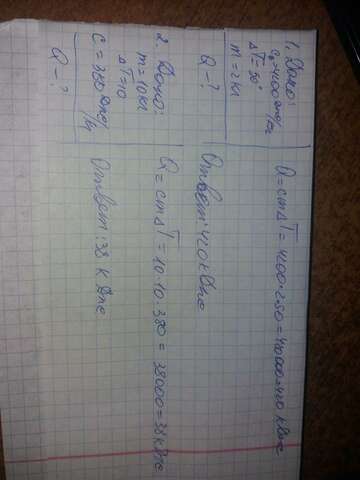 1. Дано:
c=4200 Дж/кг
ΔT=50°
m=2 кг
Q-?
Q=cmΔT=4200·2·50=420000=420 кДж
Ответ: 420 кДж
2. Дано:
m=10 кг
ΔT=10
c=380 Дж/
Q-?
Q=cmΔT=10·10·380=38000=38 кДж
Ответ: 38 кДж